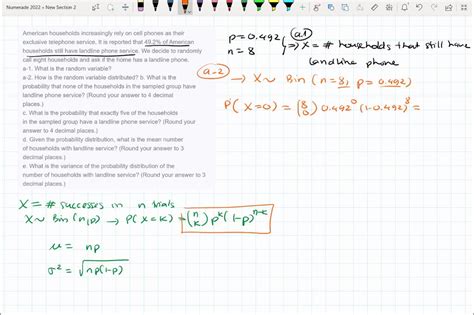 Numerade 2022 > New Section 2
American households increasingly rely on cell phones as their
exclusive telephone service. It is reported that 49.2% of American
households still have landline phone service. We decide to randomly
call eight households and ask if the home has a landline phone.
a-1. What is the random variable?
a-2. How is the random variable distributed? b. What is the
probability that none of the households in the sampled group have
landline phone service? (Round your answer to 4 decimal
places.)
c. What is the probability that exactly five of the households
in the sampled group have a landline phone service? (Round your
answer to 4 decimal places.)
d. Given the probability distribution, what is the mean number
of households with landline service? (Round your answer to 3
decimal places.)
e. What is the variance of the probability distribution of the
number of households with landline service? (Round your answer to 3
decimal places.)
p=0.492
n = 8
a.1
⇒ X = # households that still have
landline phone
a-2 → X~ Bin (n=8, p=0.492)
P(X=0) = (8 0) 0.492^0 (1-0.492)^8 =
X = # successes in n trials
X~ Bin(n,p) → P(X=k) = (n k) p^k (1-p)^{n-k}
μ = np
σ² = √np(1-p)